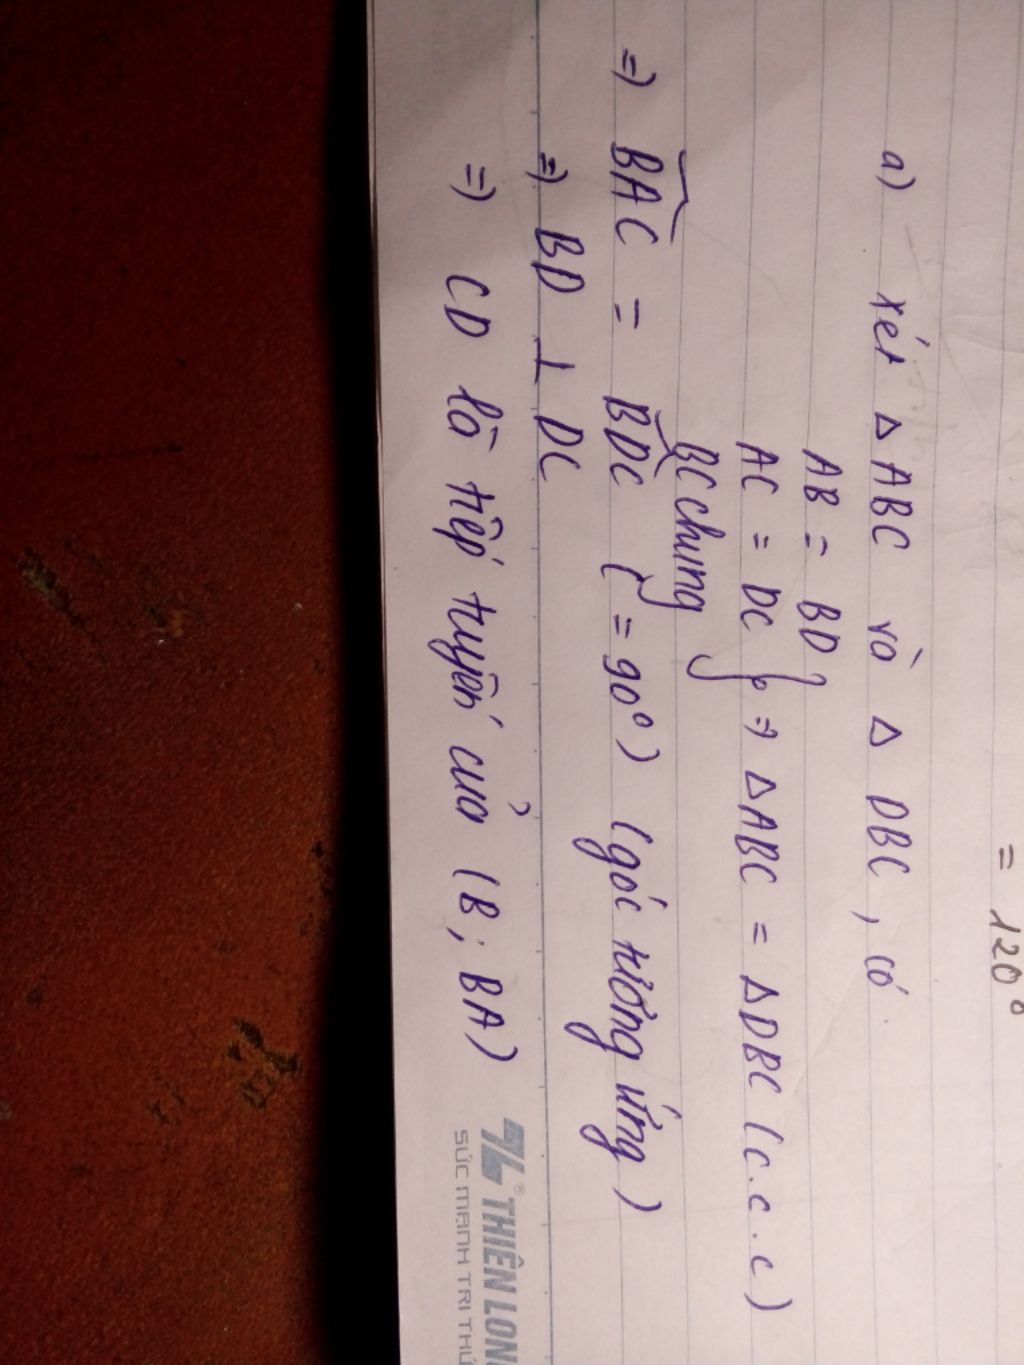 = 120°
a) xét △ ABC và △ DBC, có
AB = BD
AC = DC } => △ABC = △DBC (c.c.c)
BC chung
=> BAC = BDC ( = 90°) (góc tương ứng)
=> BD ⊥ DC
=> CD là tiếp tuyến của (B; BA)
THIÊN LONG
SỨC MẠNH TRI THỨ